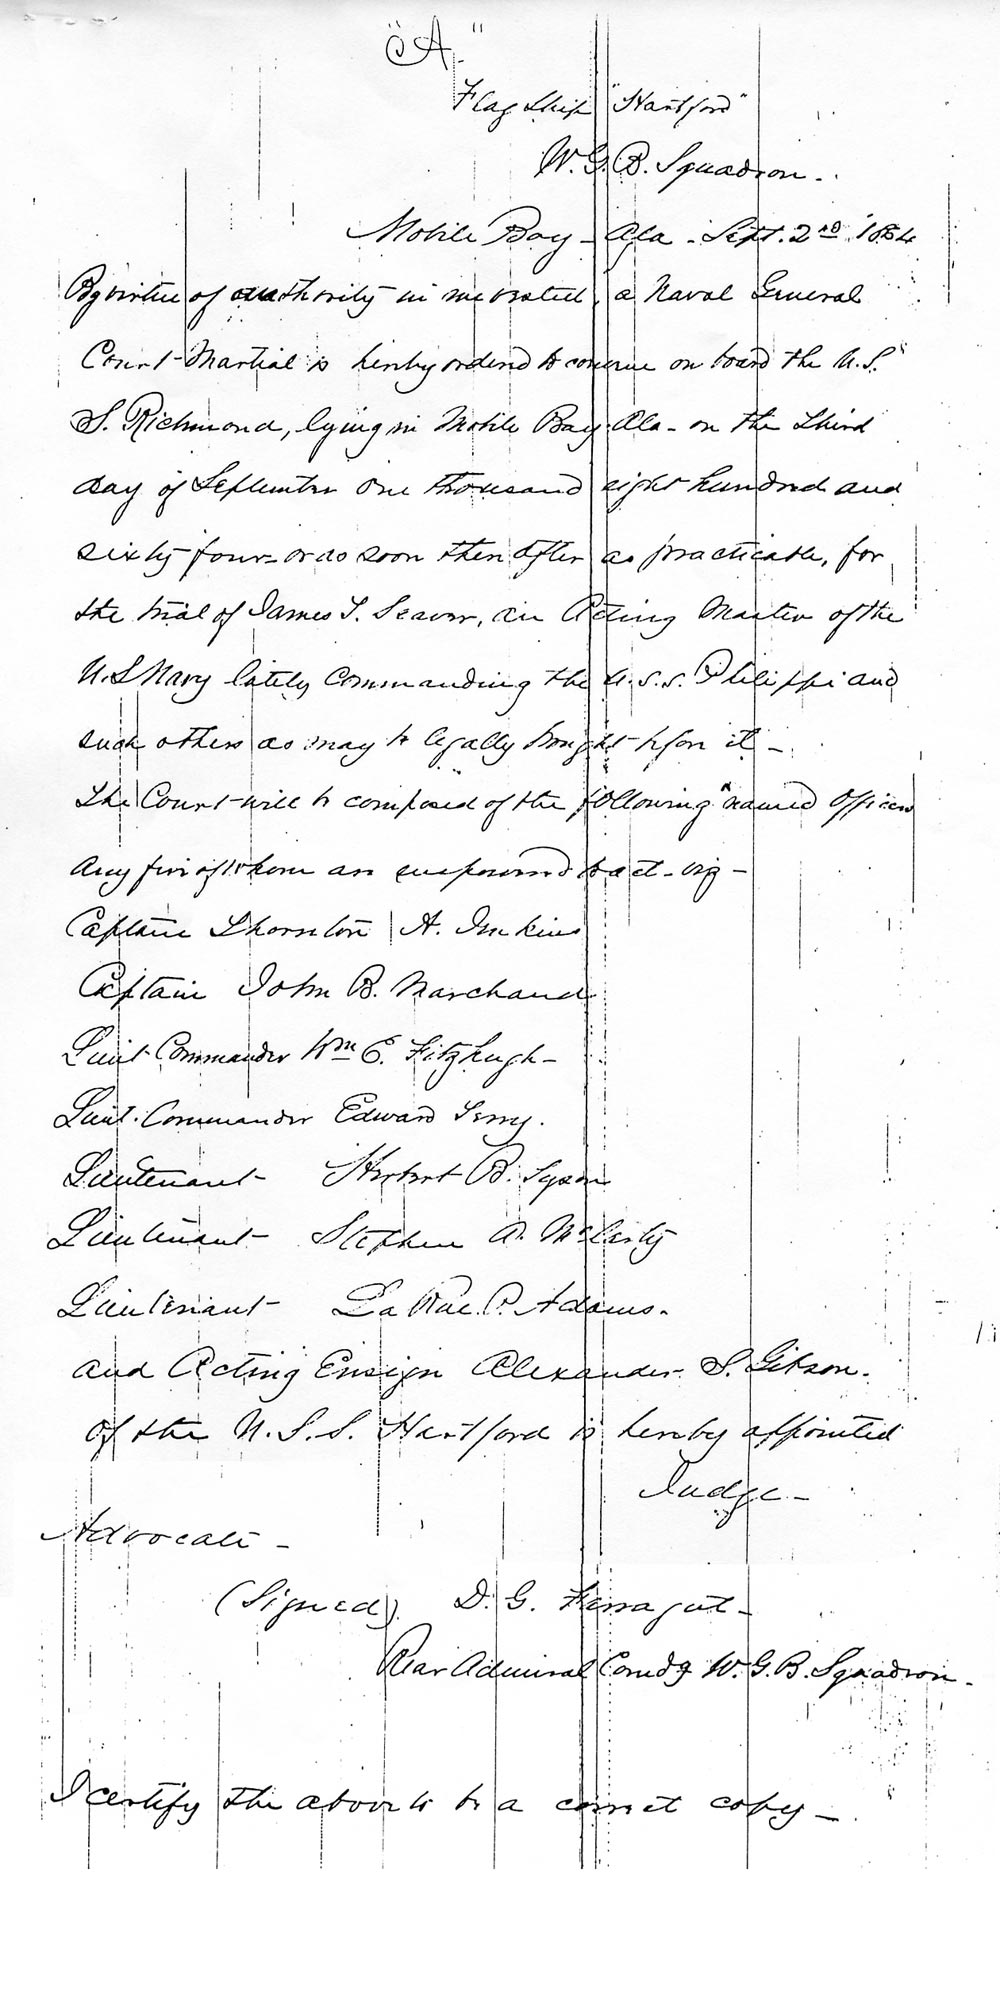 "A."
Flag Ship "Hartford"
W. G. B. Squadron.
Mobile Bay - Ala. Sept. 2nd 1864
By virtue of authority in me vested, a Naval General
Court-Martial is hereby ordered to convene on board the U.S.
S. Richmond, lying in Mobile Bay Ala - on the third
day of September one thousand eight hundred and
sixty four - or as soon thereafter as practicable, for
the trial of James T. Seaver, an Acting Master of the
U.S Navy lately Commanding the U.S.S. Philippi and
such others as may be legally brought before it -
The Court will be composed of the following named Officers
any five of whom are empowered to act - viz -
Captain Thornton A. Jenkins
Captain John B. Marchand
Lieut Commander Wm E. Fitzhugh -
Lieut. Commander Edward Terry.
Lieutenant Herbert B. Tyson
Lieutenant Stephen A. McCarty
Lieutenant La Rue P. Adams.
and Acting Ensign Alexander S. Gibson.
of the U.S.S. Hartford is hereby appointed
Judge -
Advocate -
(Signed) D. G. Farragut -
Rear Admiral Comdg W. G. B. Squadron -
I certify the above to be a correct copy -